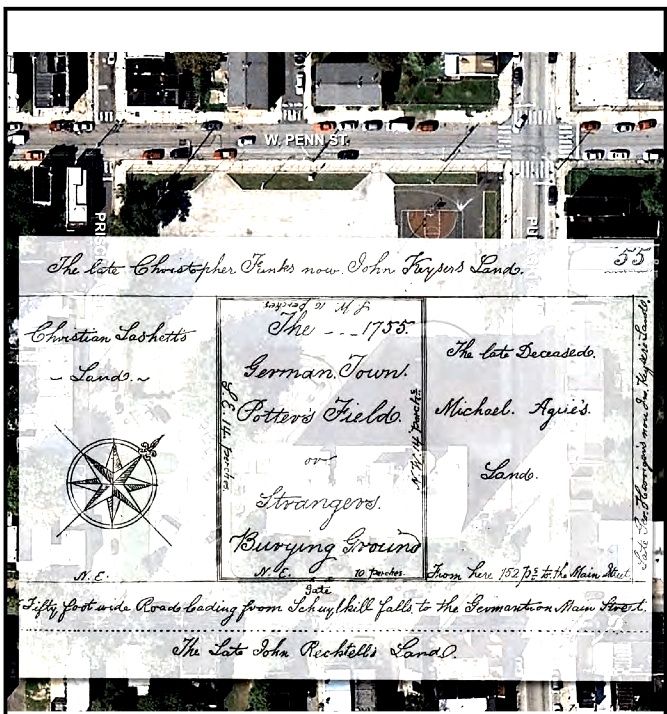 W. PENN ST.
55
The late Christopher Funks now John Keysers Land.
S. W. 10 perches
The --- 1755.
German Town.
Potter's Field.
or
Strangers.
Burying Ground
N. E. 10 perches.
S. E. 14 perches
N. W. 14 perches
Christian
~ Land. ~
N. E.
The late Deceased.
Michael. Ague's.
Land.
From here 152 ps to the Main Street
Gate
Fifty foot wide Road leading from Schuylkill falls to the Germantown Main Street.
The Late John Recktell's Land.